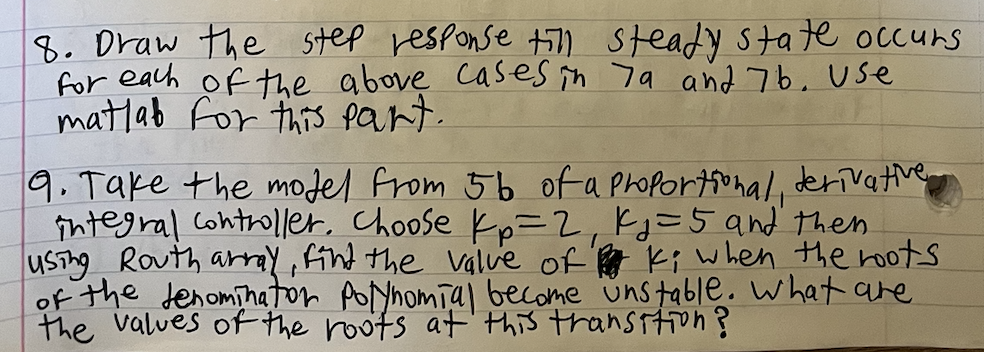 8. Draw the step response till steady state occurs
for each of the above cases in 7a and 7b. Use
matlab for this part.
9. Take the model from 5b of a proportional, derivative,
integral controller. Choose Kp=2, Kd=5 and then
using Routh array, find the value of Ki when the roots
of the denominator polynomial become unstable. What are
the values of the roots at this transition?